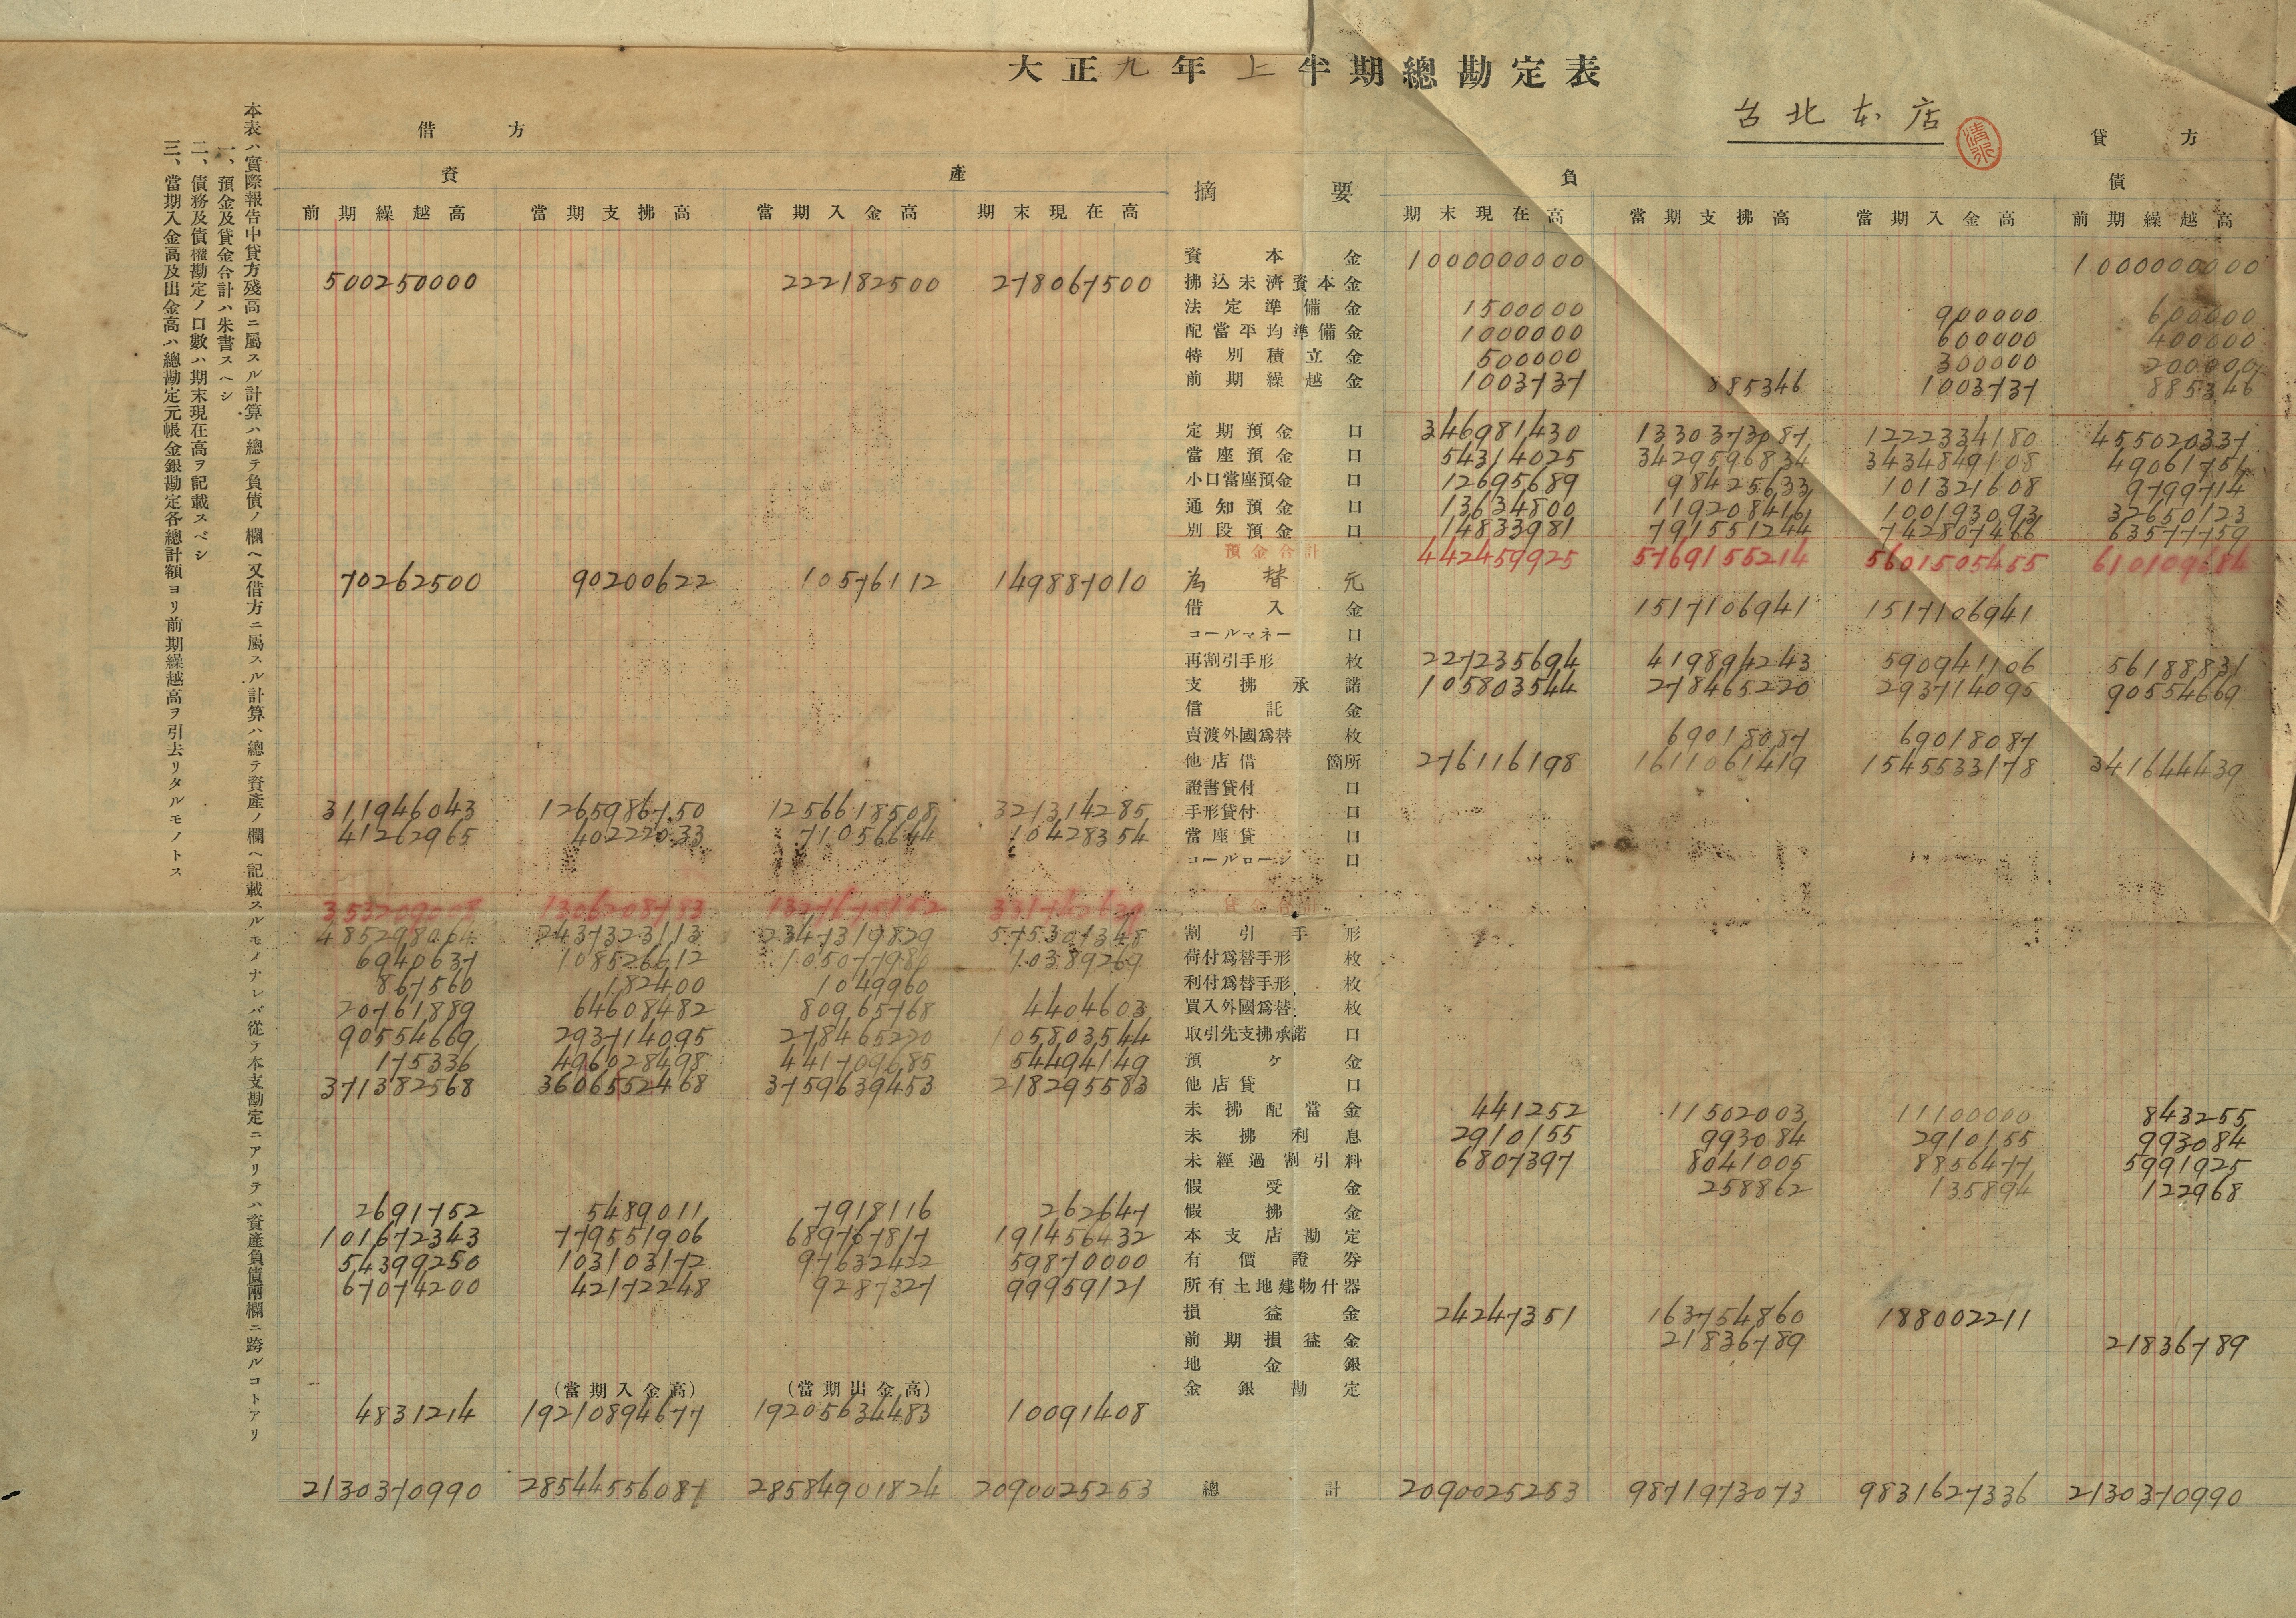 大正九年上半期總勘定表
台北本店
借方
貸方
資產
摘要
負債
前期繰越高 當期支拂高 當期入金高 期末現在高 期末現在高 當期支拂高 當期入金高 前期繰越高
資本金 1000000000 1000000000
500250000 222182500 278067500 拂込未濟資本金
法定準備金 1500000 900000 600000
配當平均準備金 1000000 600000 400000
特別積立金 500000 300000 200000
前期繰越金 1003737 885346 1003737 885346
定期預金 口 346981430 1330373087 1222334180 455020337
當座預金 口 54314025 3429596834 3434849108 49061751
小口當座預金 口 12695689 98425633 101321608 9799714
通知預金 口 13634800 119208416 100193093 32650123
別段預金 口 14833981 791551244 742807466 63577759
預金合計 442459925 5769155214 5601505455 610109684
70262500 90200622 10576112 149887010 為替元
借入金 1517106941 1517106941
コールマネー 口
再割引手形 枚 227235694 419894243 590941106 56188831
支拂承諾 105803544 278465220 293714095 90554669
信託金
賣渡外國爲替 枚 69018087 69018087
他店借 箇所 276116198 1611061419 1545533178 341644439
證書貸付 口
311946043 1265986750 1256618508 321314285 手形貸付 口
41262965 40222033 71056644 10428354 當座貸 口
コールローン 口
353209008 1306208783 1327675152 331742639 貸金合計
485298064 2437323113 2347319829 575301348 割引手形
6940637 108526612 105077980 10389269 荷付爲替手形 枚
867560 182400 1049960 利付爲替手形 枚
20761889 64608482 80965768 4404603 買入外國爲替 枚
90554669 293714095 278465220 105803544 取引先支拂承諾 口
175336 496028498 441709685 54494149 預ケ金
371382568 3606552468 3759639453 218295583 他店貸 口
未拂配當金 441252 11502003 11100000 843255
未拂利息 2910155 993084 2910155 993084
未經過割引料 6807397 8041005 8856477 5991925
假受金 258862 135894 122968
2691752 5489011 7918116 262647 假拂金
101672343 779551906 689767817 191456432 本支店勘定
54399250 103103172 97632422 59870000 有價證券
67074200 42172248 9287327 99959121 所有土地建物什器
損益金 24247351 163754860 188002211
前期損益金 21836789 21836789
地金銀
(當期入金高) (當期出金高) 金銀勘定
4831214 19210894677 19205634483 10091408
2130370990 28544556087 28584901824 2090025253 總計 2090025253 9871973073 9831627336 2130370990
本表ハ實際報告中貸方殘高ニ屬スル計算ハ總テ負債ノ欄ヘ又借方ニ屬スル計算ハ總テ資產ノ欄ヘ記載スルモノナレバ從テ本支勘定ニアリテハ資產負債兩欄ニ跨ルコトアリ
一、預金及貸金合計ハ朱書スヘシ
二、債務及債權勘定ノ口數ハ期末現在高ヲ記載スベシ
三、當期入金高及出金高ハ總勘定元帳金銀勘定各總計額ヨリ前期繰越高ヲ引去リタルモノトス